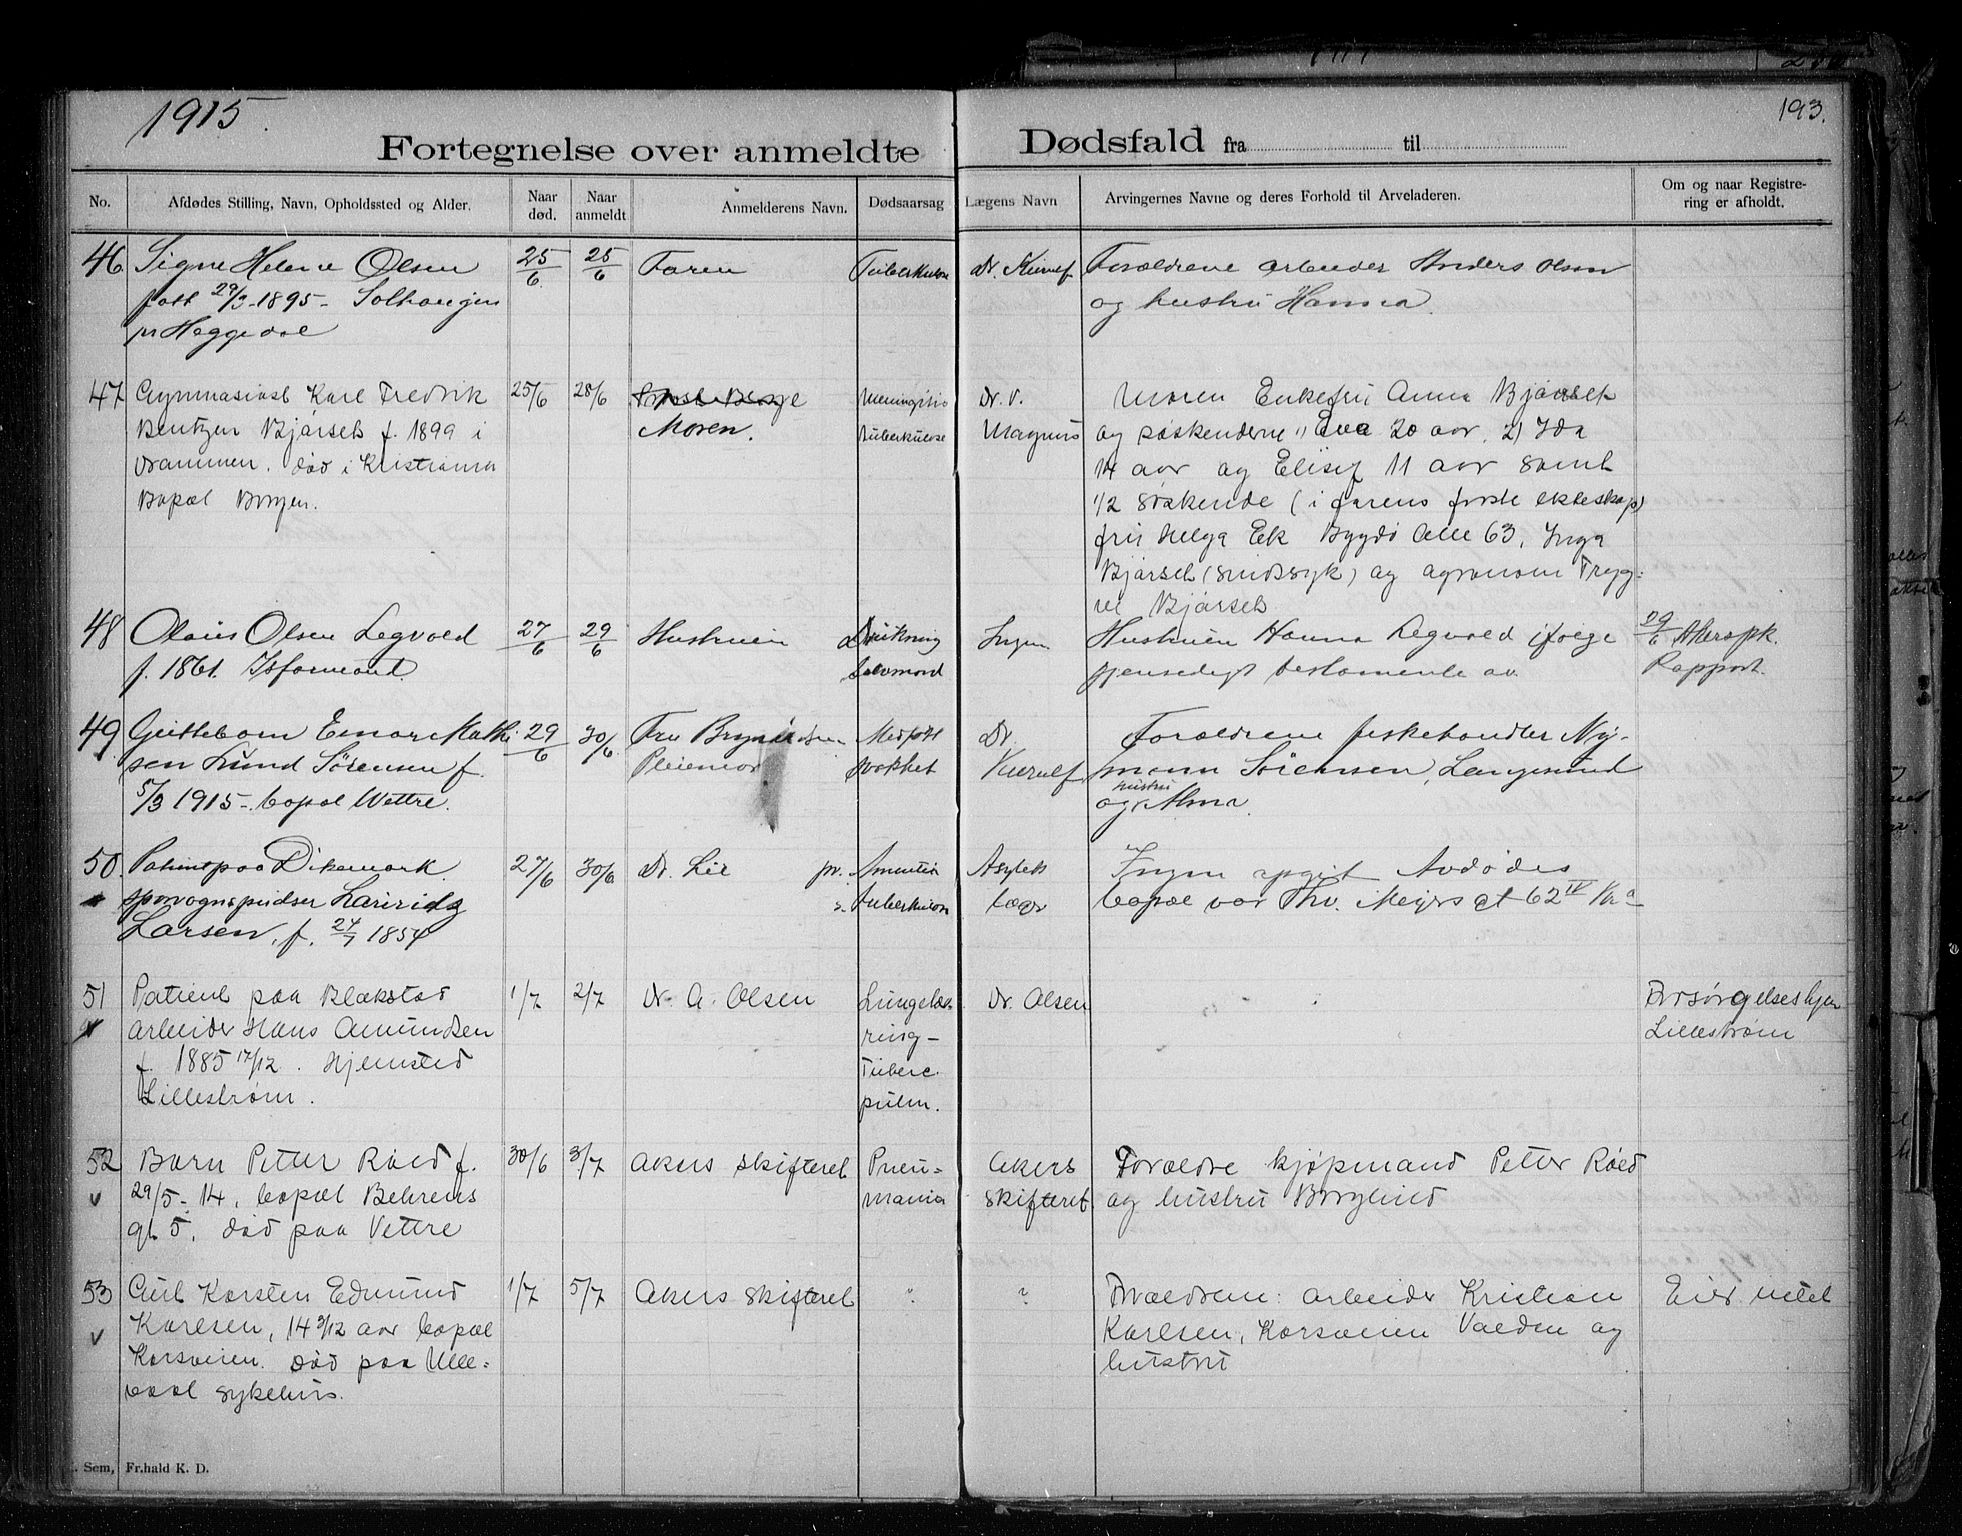 1915.
193.
Fortegnelse over anmeldte Dødsfald fra til
No. Afdødes Stilling, Navn, Opholdssted og Alder. Naar død. Naar anmeldt Anmelderens Navn. Dødsaarsag Lægens Navn Arvingernes Navne og deres Forhold til Arveladeren. Om og naar Registrering er afholdt.
46 Signe Helene Olsen 25/6 25/6 Faren Tuberkulose Dr. Forældrene arbeider Anders Olsen
født 29/3-1895- Solhaugen og hustru Hanna.
pr Heggedal
47 Gymnasiast Karl Fredrik 25/6 28/6 Meningitis Dr. V. Moren Enkefru Anna Bjørseth
Bentzen Bjørseth f. 1899 i Moren. tuberkulose Magnus og søskenderne 1) Eva 20 aar, 2) Ida
Drammen. død i Kristiania 14 aar og Elisef 11 aar samt
Bopæl Borgen. 1/2 søskende (i farens første ekteskap)
fru Helga Ek Bygdø Alle 63, Inga
Bjørseth (sindssyk) og agronom Tryg-
ve Bjørseth
48 Olaus Olsen Legvold 27/6 29/6 Hustruen Drukning Ingen Hustruen Hanna Legvold ifølge 29/6 Akers pk.
f. 1861. Isformand selvmord gjensedigt testamente av Rapport.
49 Guttebarn Einar Mathi 29/6 30/6 Fru Medfødt Dr. Forældrene fiskehandler Ny-
sen Lund Sørensen f. Pleiemor svakhet Kierulf mann Sørensen, Langesund
5/3 1915- bopæl Vettre. og hustru Alma.
50. Patient paa Dikemark 27/6 30/6 Dr. Lie pr. Amentia Asylets Ingen opgit Avdødes
sporvognspudser Laurids s. Tuberkulose læge bopæl var Thv. Meyers gt 62 IV Kr.a
Larsen, f. 24/7 1854
51 Patient paa Blakstad 1/7 2/7 Dr. A. Olsen Lungetæ- Dr. Olsen " Forsørgelseshjem
arbeider Hans Amundsen ring- Lillestrøm
f. 1885 17/12. Hjemsted Tuberc.
Lillestrøm. pulm.
52 Barn Petter Røed f. 30/6 3/7 Akers skifteret Pneu- Akers Forældre kjøpmand Petter Røed
v 29/5-14, bopæl Behrens monia skifteret og hustru Borghild
gt 5, død paa Vettre
53 Gut Karsten Edmund 1/7 5/7 Akers skifteret " " Forældrene: arbeider Kristian Eier intet
v Karlsen, 14 9/12 aar bopæl Karlsen, Korsveien Valden og
Korsveien. død paa Ulle- hustru
vaal sykehus.
Sem, Fr.hald K. D.